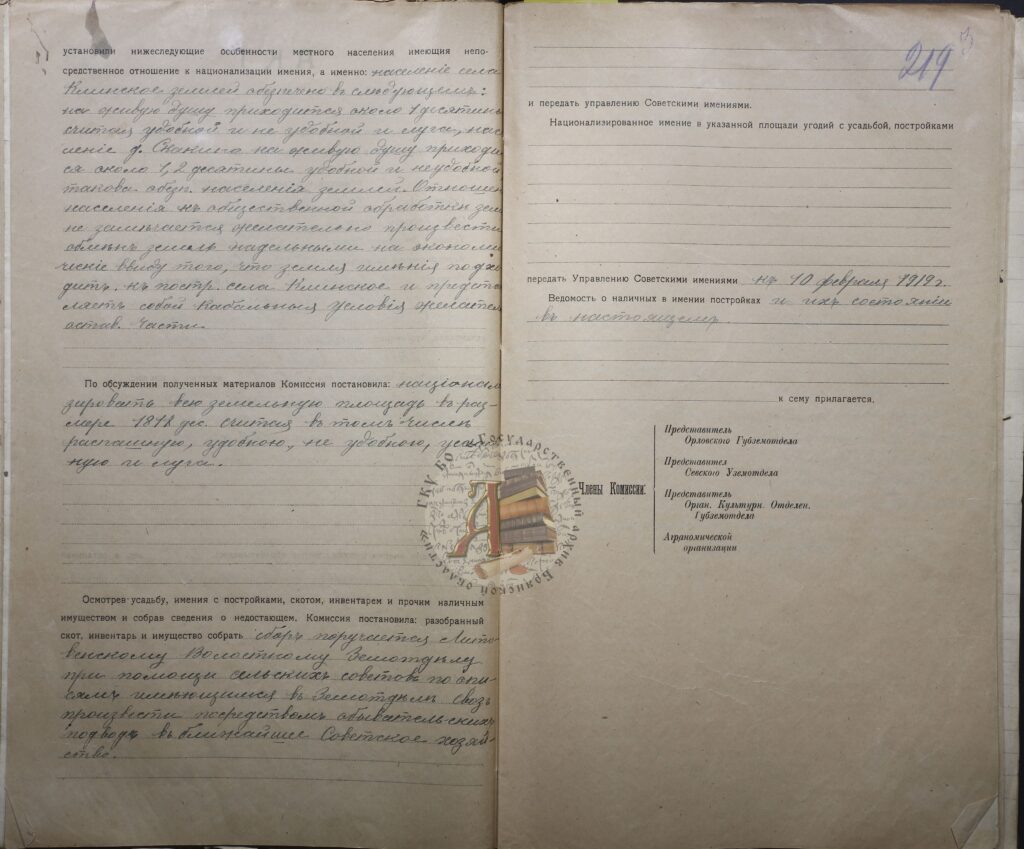 установили нижеследующие особенности местного населения имеющия непо-
средственное отношение к национализации имения, а именно: населенiе села
Клинское землей обезпечено въ следующемъ:
на живую душу приходится около 1 десятины
считая удобной и не удобной и луга, нас
ленiе д. на живую душу приходи
ся около 1,2 десятины удобной и неудобной
такова обезп. населенiя землей. Отноше
населенiя къ общественной обработкѣ зем
не замѣчается желательно произвести
обмѣнъ земель надельными на экономи
ческiе ввиду того, что земля имѣнiя подхо
дитъ къ постр. села Клинское и предст
ляетъ собой Кабальныя условiя желается
остав. части.
По обсуждении полученных материалов Комиссия постановила: национал
зировать всю земельную площадь въ раз-
мере 1818 дес. считая въ томъ числѣ
распашную, удобною, не удобною, усад
ную и луга.
Осмотрев усадьбу, имения с постройками, скотом, инвентарем и прочим наличным
имуществом и собрав сведения о недостающем, Комиссия постановила: разобранный
скот, инвентарь и имущество собрать сборъ поручается Лито-
венскому Волостному Земотдѣлу
при помощи сельскихъ советов по спи-
скамъ имѣющимся въ Земотделѣ свозъ
произвести посредствомъ обывательскихъ
подводъ въ ближайшие Советское хозяй-
ство.
219
3
и передать управлению Советскими имениями.
Национализированное имение в указанной площади угодий с усадьбой, постройками
передать Управлению Советскими имениями къ 10 февраля 1919 г.
Ведомость о наличных в имении постройках и ихъ состоянiи
въ настоящемъ
к сему прилагается.
Члены Комиссии:
Представитель
Орловского Губземотдела
Представител
Севского Уземотдела
Представитель
Орган. Культурн. Отделен.
Губземотдела
Аграномической
организации
ГКУ БО «Государственный архив Брянской области»